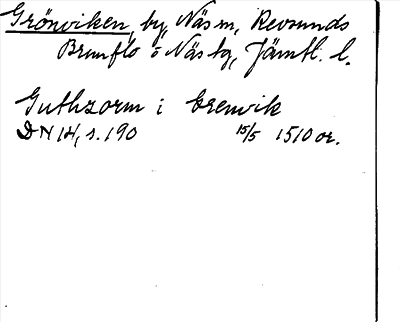 Grönviken, by, Näs sn, Revsunds
Brunflo o Näs tg, Jämtl. l.
Guthzorm i Grenvik
DN 14, s. 190 15/5 1510 or.